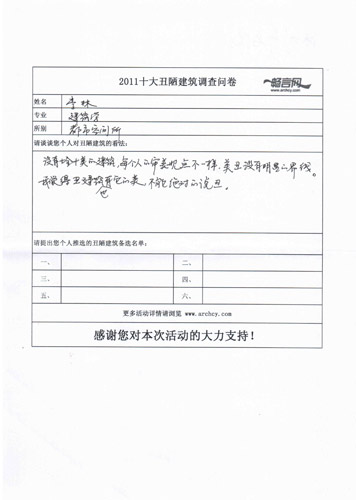 2011十大丑陋建筑调查问卷
畅言网
www.archcy.com
姓名 李林
专业 建筑学
所别 都市空间所
请谈谈您个人对丑陋建筑的看法:
没有绝对美的建筑,每个人的审美观点不一样,美丑没有明显的界线。
我觉得丑建筑也有它的美 不能绝对的说丑。
请提出您个人推选的丑陋建筑备选名单:
一、 二、
三、 四、
五、 六、
更多活动详情请浏览 www.archcy.com
感谢您对本次活动的大力支持!